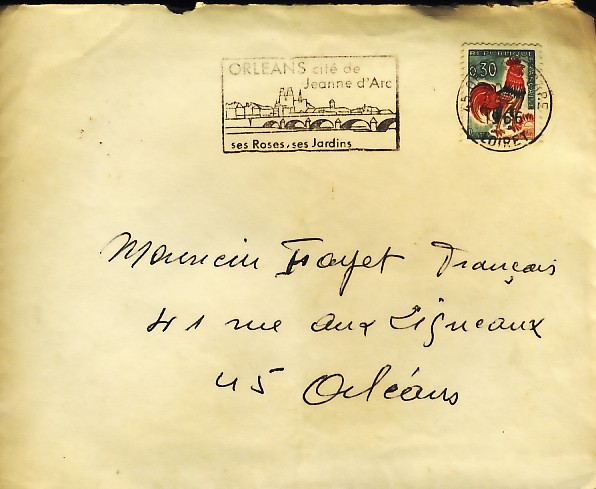 ORLEANS cité de
Jeanne d'Arc
ses Roses, ses Jardins
REPUBLIQUE
0,30
1966
LOIRET
Monsieur Fayet François
41 rue aux Ligneaux
45 Orléans